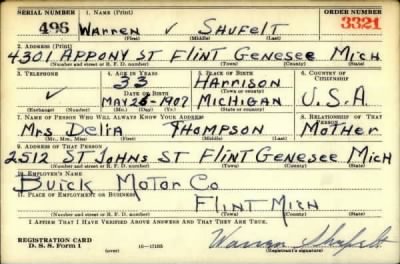 SERIAL NUMBER 1. NAME (Print) ORDER NUMBER
496 Warren V Shufelt 3321
(First) (Middle) (Last)
2. ADDRESS (Print)
4301 APPONY ST FLINT GENESEE MICH
(Number and street or R. F. D. number) (Town) (County) (State)
3. TELEPHONE 4. AGE IN YEARS 5. PLACE OF BIRTH 6. COUNTRY OF CITIZENSHIP
33 HARRISON
DATE OF BIRTH (Town or county)
✓ MAY 26-1907 MICHIGAN U.S.A.
(Exchange) (Number) (Mo.) (Day) (Yr.) (State or country)
7. NAME OF PERSON WHO WILL ALWAYS KNOW YOUR ADDRESS 8. RELATIONSHIP OF THAT PERSON
Mrs Delia THOMPSON MOTHER
(Mr., Mrs., Miss) (First) (Middle) (Last)
9. ADDRESS OF THAT PERSON
2512 ST JOHNS ST FLINT GENESEE MICH
(Number and street or R. F. D. number) (Town) (County) (State)
10. EMPLOYER'S NAME
Buick Motor Co
11. PLACE OF EMPLOYMENT OR BUSINESS
FLINT MICH
(Number and street or R. F. D. number) (Town) (County) (State)
I AFFIRM THAT I HAVE VERIFIED ABOVE ANSWERS AND THAT THEY ARE TRUE.
REGISTRATION CARD
D. S. S. Form 1 16—17105 Warren Shufelt
(Registrant's signature)